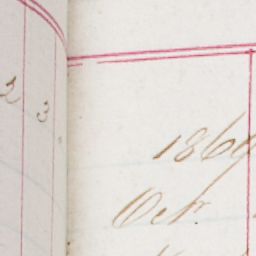 2 3
1869
Oct.